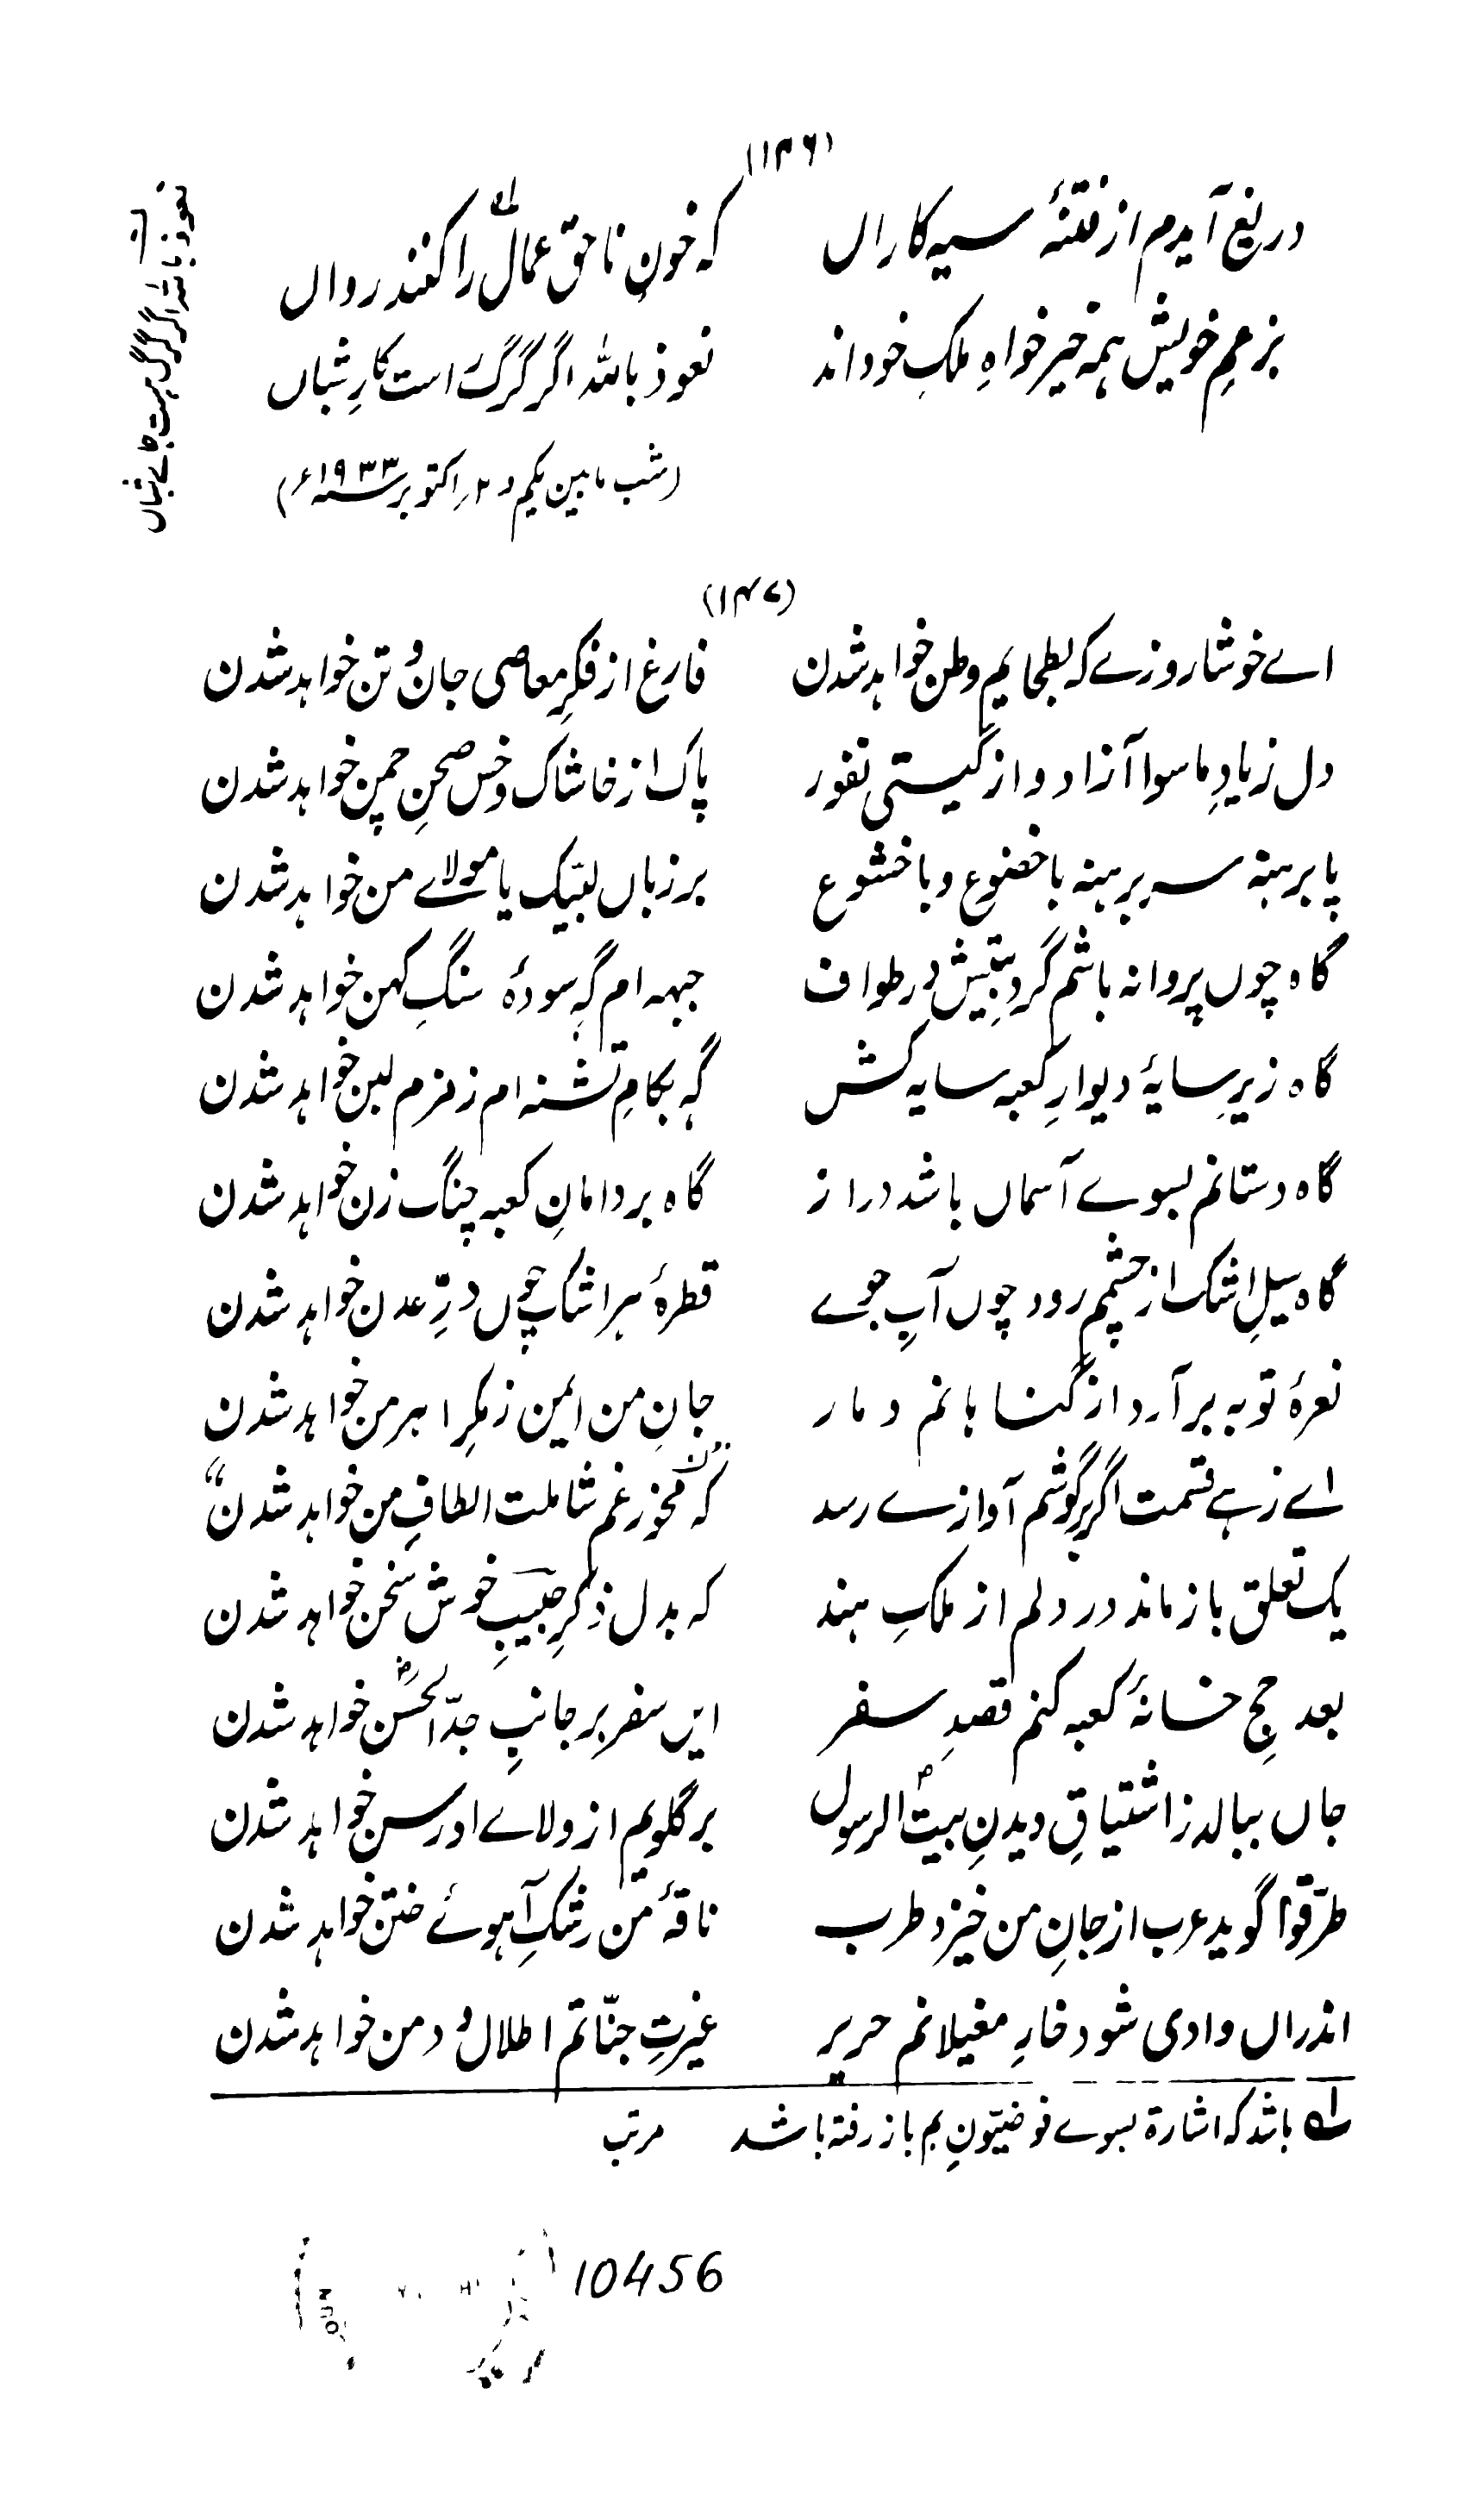 (۱۴۶)
دریغ آیدم از فتنۂ سیہ کاراں کہ خونِ ناحق عمالؔ را کنند رواں
بزعمِ خویش ہمہ خیر خواہِ ملکِ خود اند نعوذ باللہ اگر گرگ است کارِ شباں
(شب مابین یکم و ۲؍ اکتوبر ۱۹۳۳ء)
(۱۴۷)
اے خوشا روزے کہ بطحایم وطن خواہد شدن فارغ از فکرِ معاصی جان و تن خواہد شدن
دل ز یادِ ماسوا آزاد و از گیتی نفور پاک از خاشاک و خس صحنِ چمن خواہد شدن
پا برہنہ سر برہنہ با خضوع و با خشوع بر زباں لبیک یا مولاے من خواہد شدن
گاہ چوں پروانہ باشم گردِ بیتش در طواف جبہہ ام گہ سودۂ سنگِ کہن خواہد شدن
گاہ زیرِ سایۂ دیوارِ کعبہ سایہ کش گہ بکامِ تشنہ ام زمزم لبن خواہد شدن
گاہ دستانم بسوے آسماں باشد دراز گاہ بر دامانِ کعبہ چنگ زن خواہد شدن
گاہ سیلِ اشک از چشمم رود چوں آبِ جوے قطرۂ ہر اشک چوں درِّ عدن خواہد شدن
نعرۂ توبہ برآرد از گناہانم دمار جانِ من ایمن ز مکرِ اہرمن خواہد شدن
اے زہے قسمت اگر بر گوشم آوازے رسد کہ "مخور غم شاملت الطافِ من خواہد شدن"
یک تعلق باز ماند در دلم از ملکِ ہند کہ بدل ذکرِ حبیبِ خوش سخن خواہد شدن
بعد حجِ خانۂ کعبہ کنم قصدِ سفر ایں سفر بر جانبِ جدّ الحسنؓ خواہد شدن
جاں ببالد ز اشتیاقِ دیدنِ بیت الرسولؐ بر گلویم از ولاے او رسن خواہد شدن
طرّقوا گوید عرب از جانِ من خیزد طرب ناقۂ من رشکِ آہوئے ختن خواہد شدن
اندراں وادی شود خارِ مغیلانم حریر غیرتِ جنّاتم اطلال و دمن خواہد شدن
؎۱ باشد کہ اشارۃ بسوے فوضیّونِ بم باز رفتہ باشد مرتب
10456